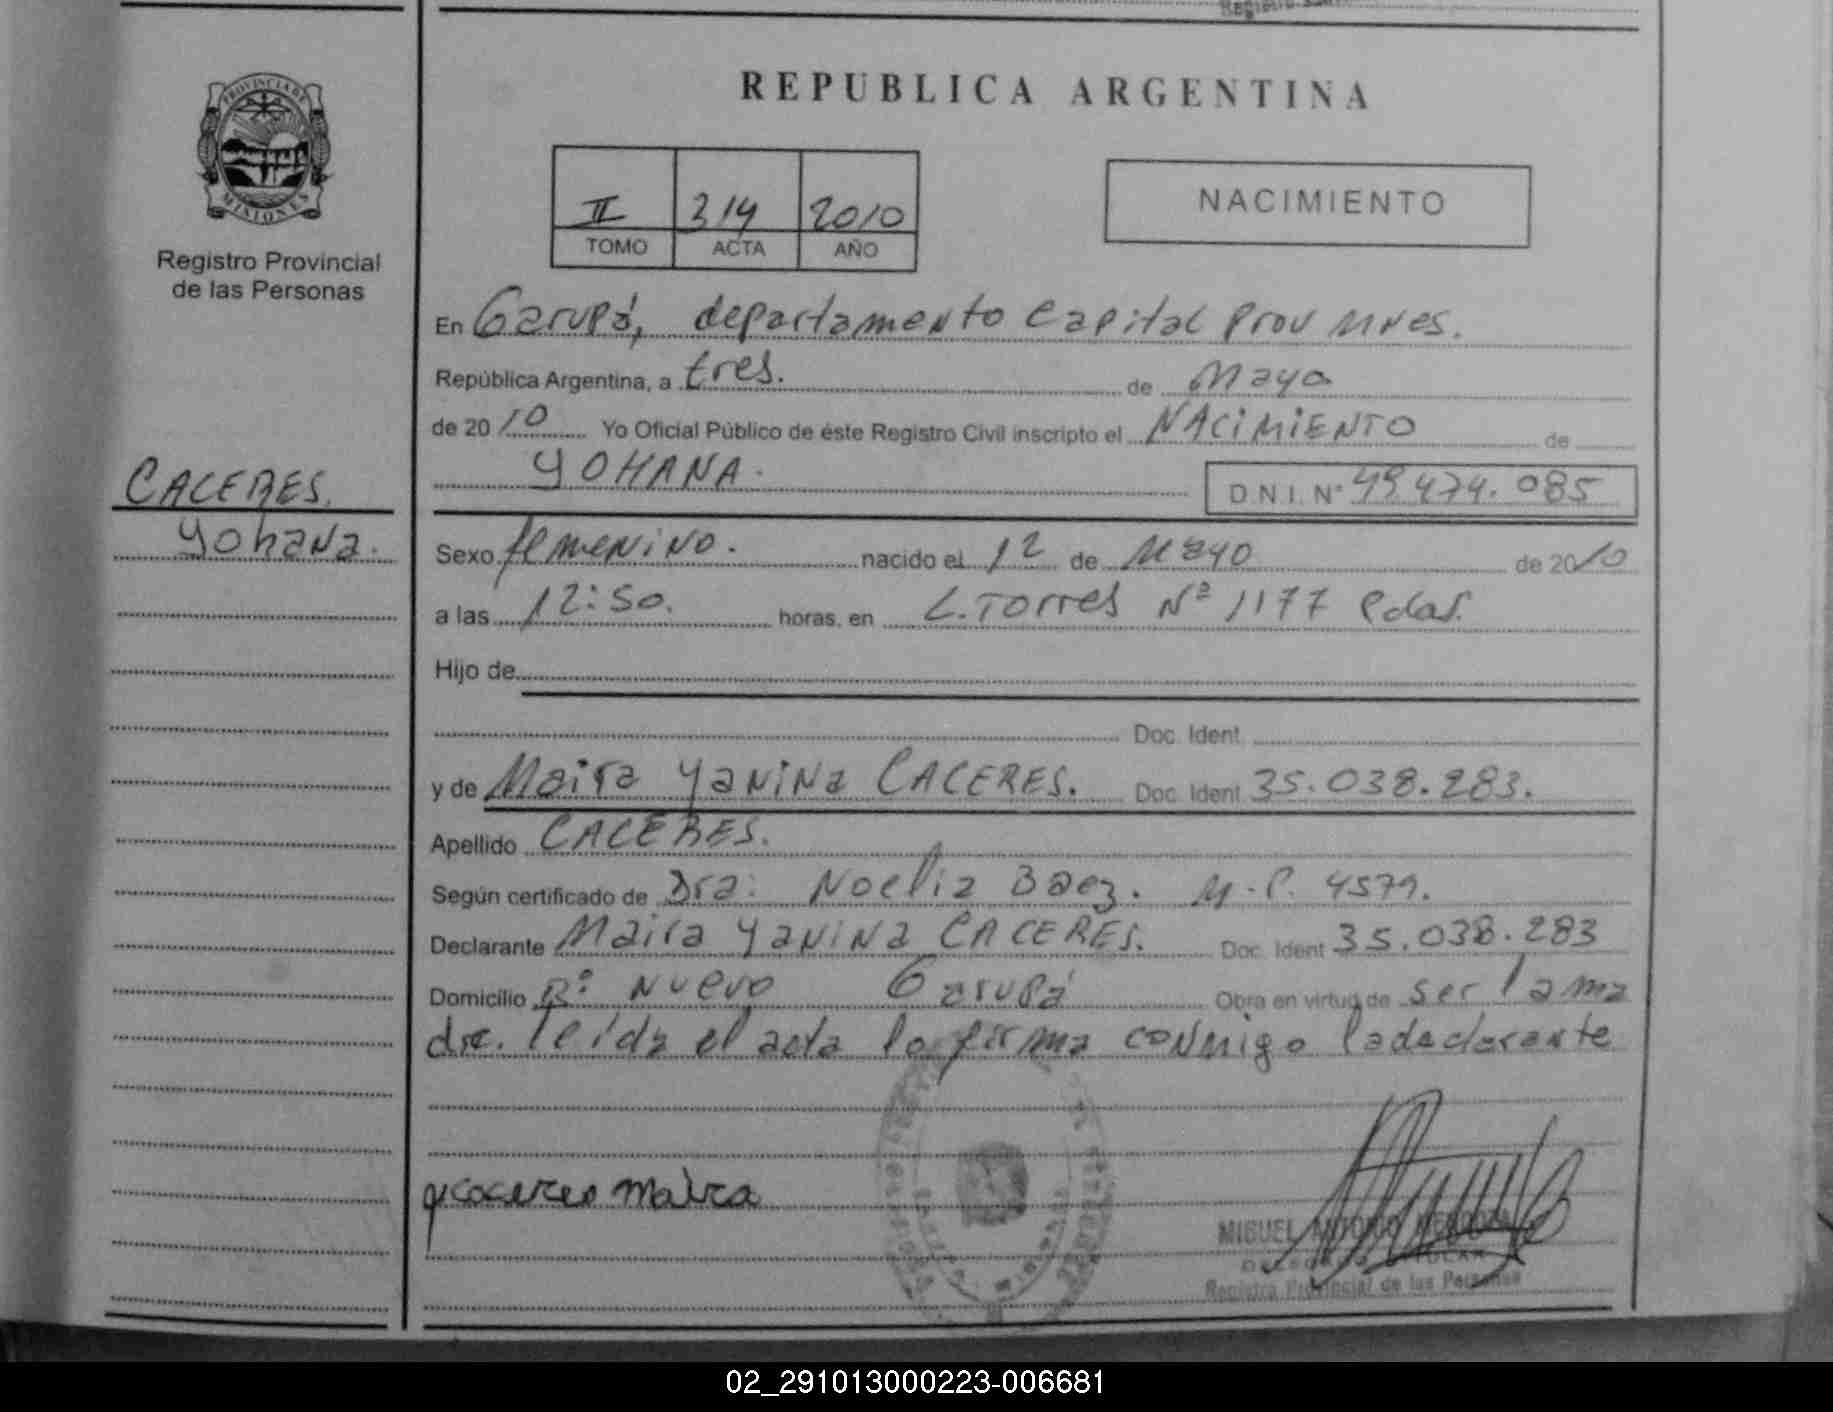 REPUBLICA ARGENTINA
PROVINCIA DE
MISIONES
Registro Provincial
de las Personas
II 314 2010
TOMO ACTA AÑO
NACIMIENTO
En Garupá, departamento Capital Prov Mnes.
República Argentina, a tres. de Mayo
de 2010 Yo Oficial Público de éste Registro Civil inscripto el NACIMIENTO de
YOHANA. D.N.I. Nº 49.474.085
CACERES.
Yohana.
Sexo femenino. nacido el 1º de Mayo de 2010
a las 12:50. horas, en L. Torres Nº 1177 Pdas.
Hijo de
Doc. Ident.
y de Maira Yanina CACERES. Doc. Ident 35.038.283.
Apellido CACERES.
Según certificado de Dra: Noelia Baez. M.P. 4579.
Declarante Maira Yanina CACERES. Doc. Ident 35.038.283
Domicilio Bº Nuevo Garupá Obra en virtud de ser la ma
dre. leida el acta lo firma conmigo la declarante
Caceres Maira
MIGUEL ANTONIO MENDOZA
Registro Provincial de las Personas
02_291013000223-006681